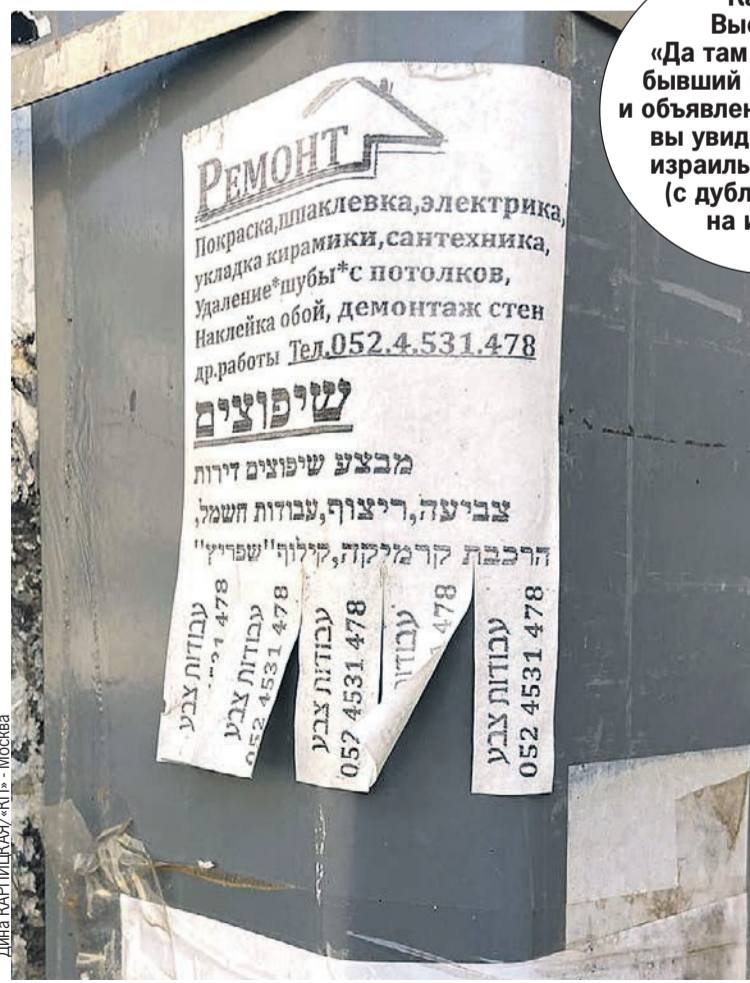 Вы
«Да там
бывший
и объявлен
вы увид
израиль
(с дубл
на и
РЕМОНТ
Покраска,шпаклевка,электрика,
укладка кирамики,сантехника,
Удаление*шубы*с потолков,
Наклейка обой, демонтаж стен
др.работы Тел.052.4.531.478
שיפוצים
מבצע שיפוצים דירות
צביעה,ריצוף,עבודות חשמל,
הרכבת קרמיקה,קילוף"שפריץ"
עבודות צבע
478
עבודות צבע
052 4531 478
עבודות צבע
052 4531 478
478
עבודות צבע
052 4531 478
Дина КАРПИЦКАЯ/«КП» - Москва